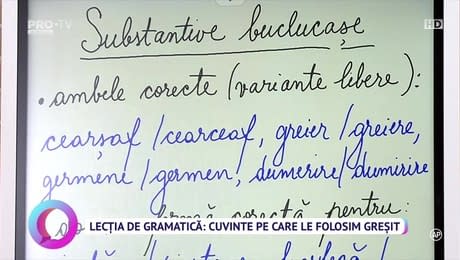 PRO•TV
HD
Substantive buclucașe
• ambele corecte (variante libere):
cearșaf/cearceaf, greier/greiere,
germene/germen, dumerire/dumirire
formă corectă pentru:
LECȚIA DE GRAMATICĂ: CUVINTE PE CARE LE FOLOSIM GREȘIT
AP